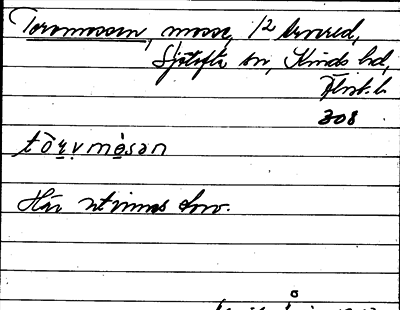 Torvmossen, mosse, 1/2 Arnered,
Sjötofta sn, Kinds hd,
Älvsb. l.
308
tò̱ṛvmòsən
Här utvinnes torv.